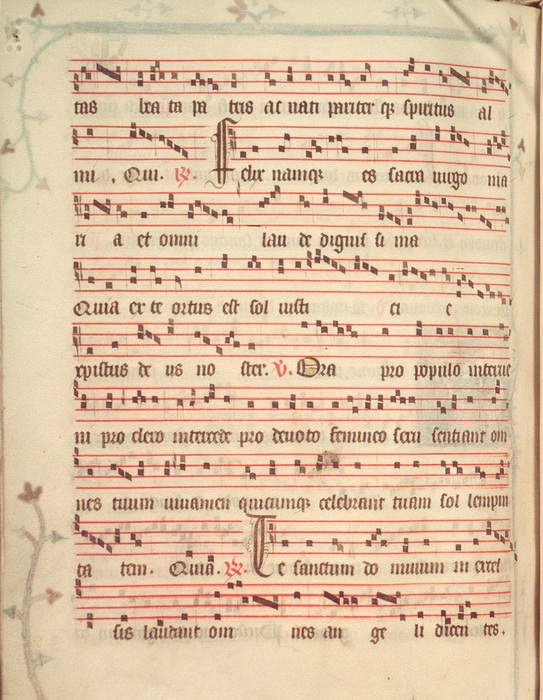 tas bea ta pa tris ac nati pariter qꝫ spiritus al
mi . Qui. ℟. Felix namqꝫ es sacra uirgo ma
ri a et omni lau de dignis si ma
Quia ex te ortus est sol iusti ti e
xpistus de us no ster. ℣. Ora pro populo interue
ni pro clero intercede pro deuoto femineo sexu sentiant om
nes tuum iuuamen quicumqꝫ celebrant tuam sol lempni
ta tem. Quia. ℟. Te sanctum do minum in excel
sis laudant om nes an ge li dicen tes.